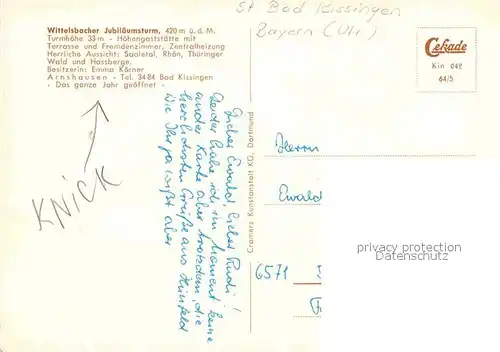 St Bad Kissingen
Bayern (Ufr.)
Wittelsbacher Jubiläumsturm, 420 m ü. d. M.
Turmhöhe 33 m - Höhengaststätte mit
Terrasse und Fremdenzimmer, Zentralheizung
Herrliche Aussicht: Saaletal, Rhön, Thüringer
Wald und Hassberge.
Besitzerin: Emma Körner
Arnshausen - Tel. 3484 Bad Kissingen
- Das ganze Jahr geöffnet -
KNICK
Lieber Ewald, lieber Rudi!
Leider habe ich im Moment keine
andere Karte aber trotzdem die
herzlichsten Grüße aus Hünfeld
Wie Ihr ja wißt aber
Cramers Kunstanstalt KG, Dortmund
Cekade
Kin 049
64/5
Herrn
Ewald
6571
privacy protection
Datenschutz